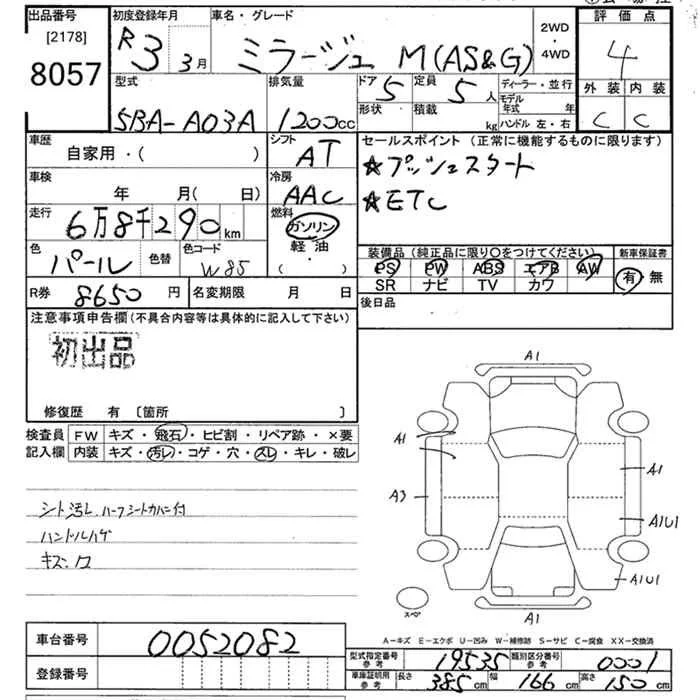 出品番号
[2178]
8057
初度登録年月
R3年 3月
車名・グレード
ミラージュ M(AS&G)
2WD
・
4WD
評価点
4
外装 内装
C C
型式
5BA-A03A
排気量
1200cc
ドア 5
定員 5人
形状
積載 kg
ディーラー・並行
モデル年式 年
ハンドル 左・右
車歴
自家用・( )
シフト
AT
セールスポイント (正常に機能するものに限ります)
★プッシュスタート
★ETC
車検
年 月( 日)
冷房
AAC
走行
6万8千290km
燃料
ガソリン
軽油
・( )
色
パール
色替
色コード
W85
装備品 (純正品に限り〇をつけてください)
PS PW ABS エアB AW
SR ナビ TV カワ
新車保証書
有・無
R券 8650円
名変期限 月 日
後日品
注意事項申告欄(不具合内容等は具体的に記入して下さい)
初出品
修復歴 有 〔箇所 〕
検査員記入欄
FW キズ・飛石・ヒビ割・リペア跡・×要
内装 キズ・汚レ・コゲ・穴・スレ・キレ・破レ
シート汚レ、ハーフシートカバー付
ハンドルハゲ
キズ・ワ
A1
A1
A1
A3
A1U1
A1U1
A1
スペア
A-キズ E-エクボ U-凹み W-補修跡 S-サビ C-腐食 XX-交換済
車台番号
0052082
登録番号
型式指定番号 参考 19535
類別区分番号 参考 0001
車庫証明用 参考 長さ 385cm 幅 166cm 高さ 150cm